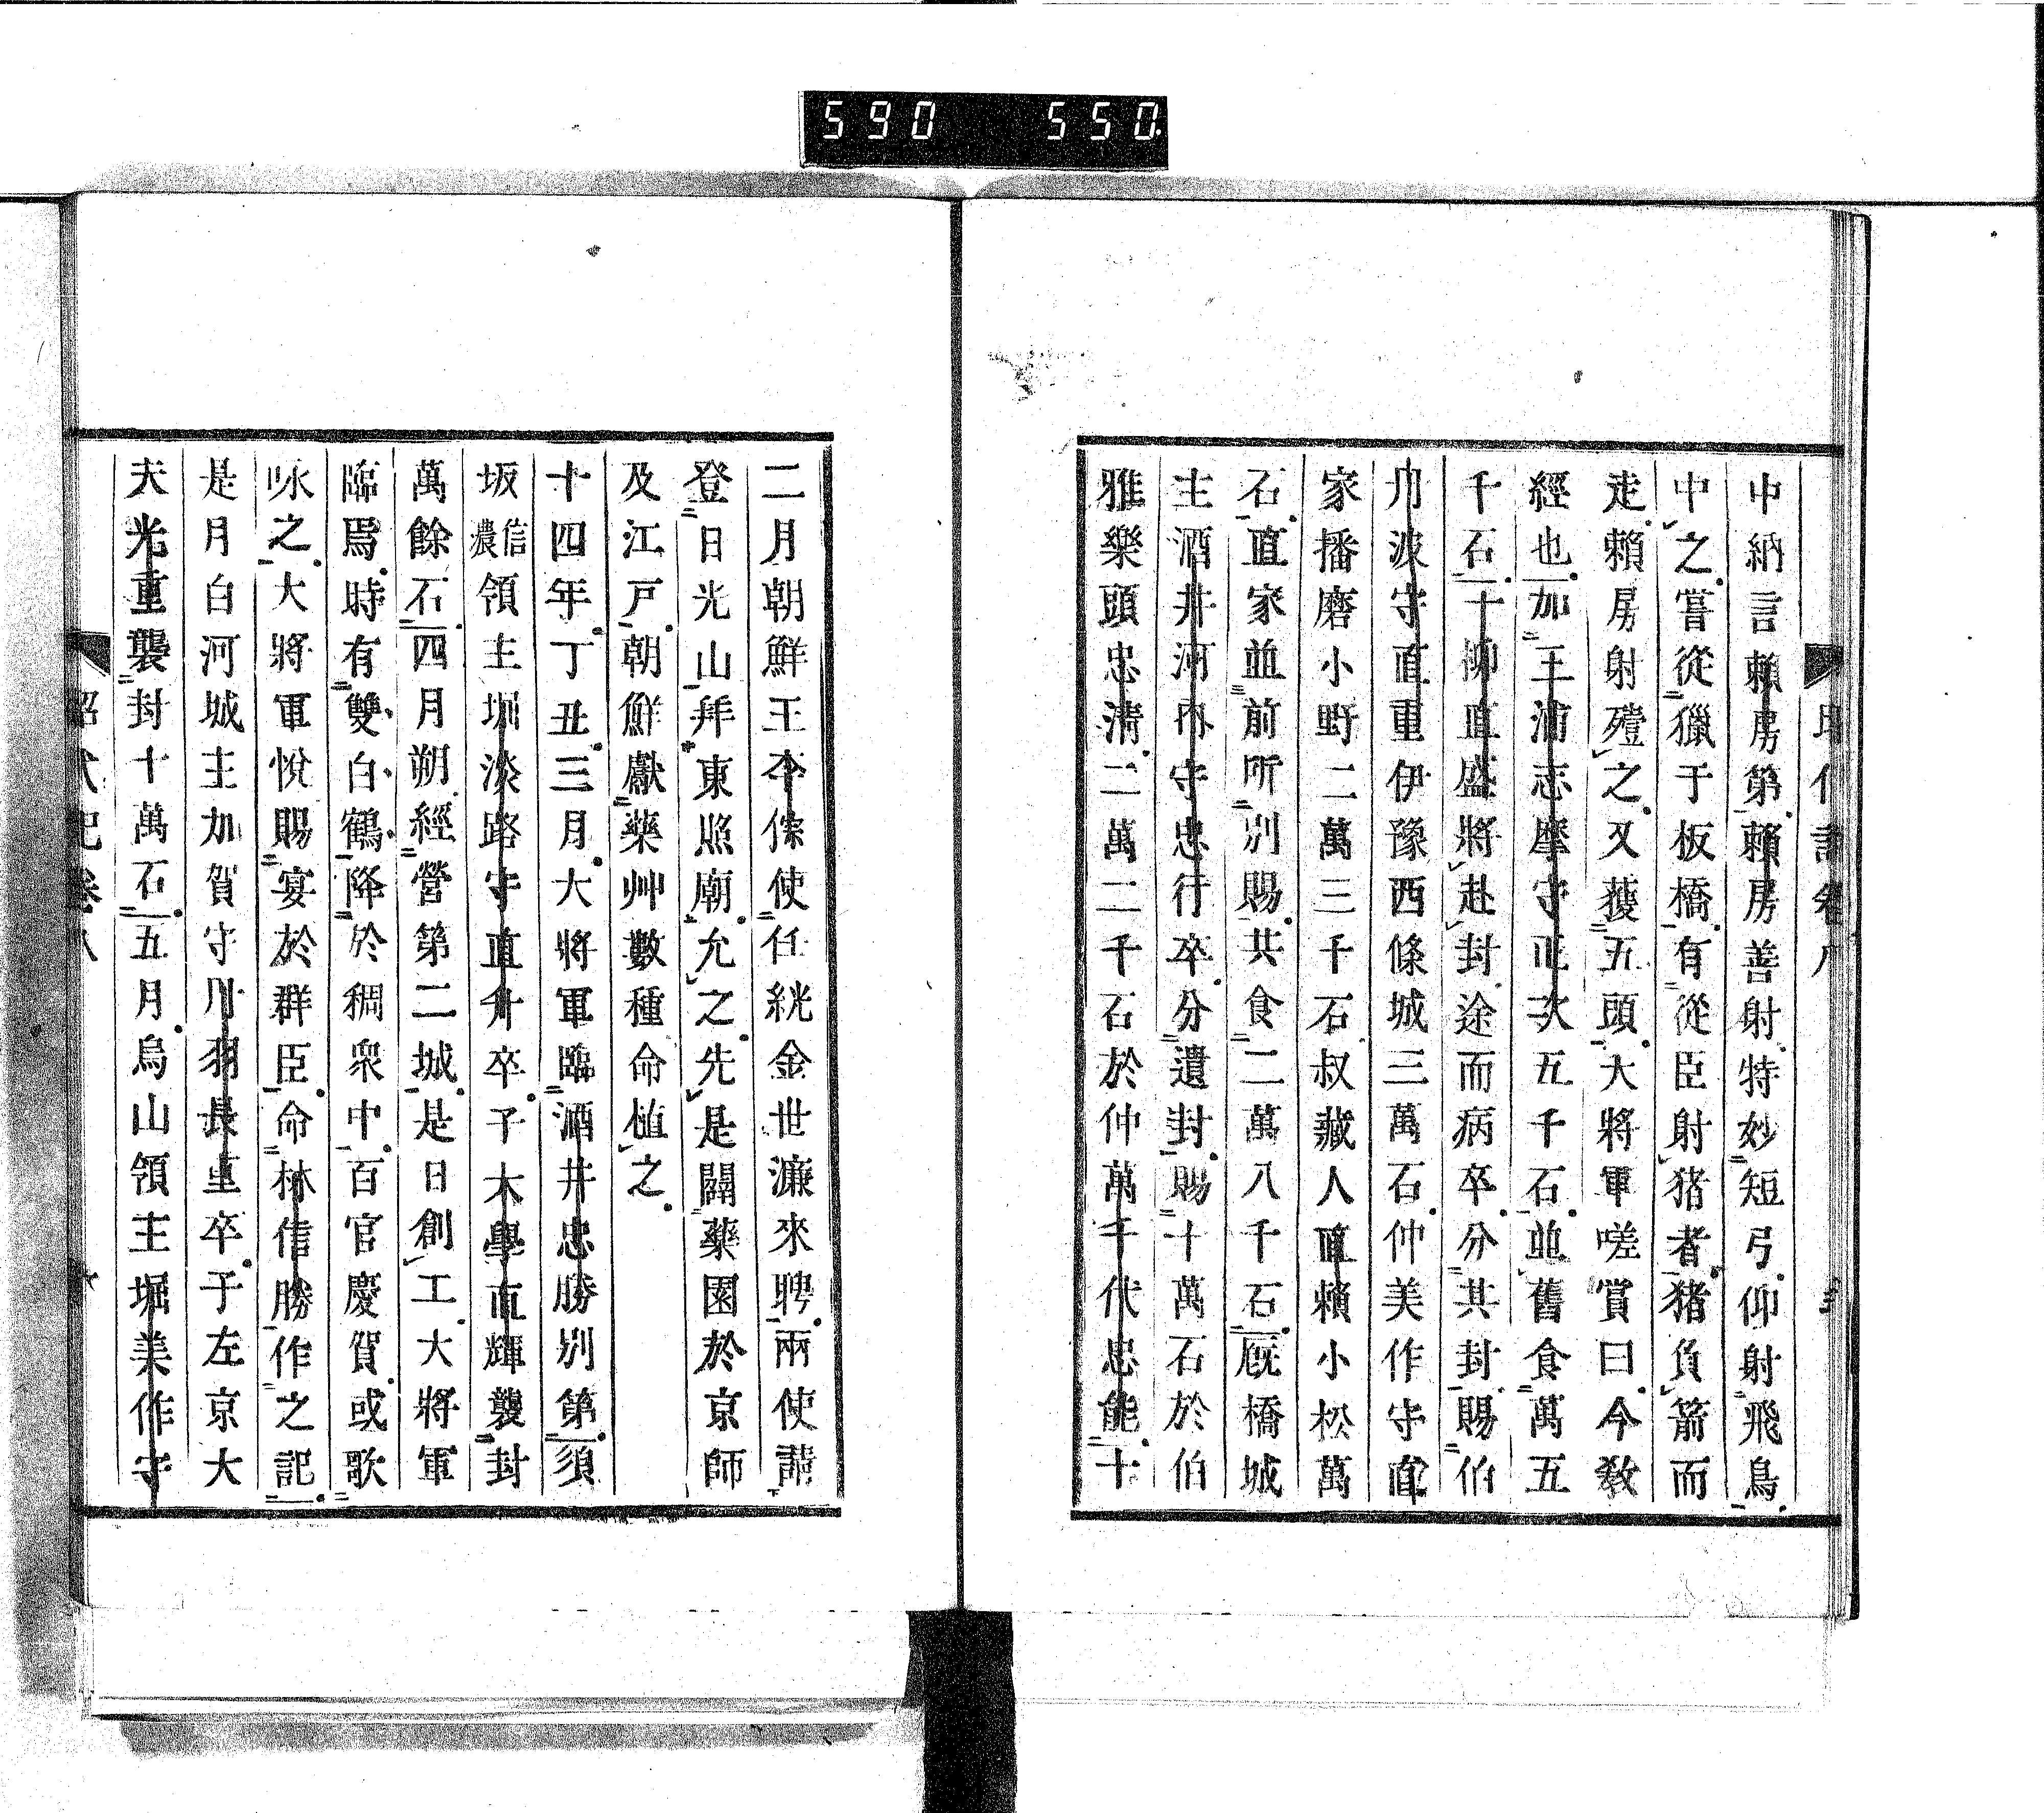 590 550
中納言賴房第賴房善射特妙短弓仰射飛鳥
中之嘗從獵于板橋有從臣射猪者猪負箭而
走賴房射殪之又獲五頭大將軍嗟賞曰今教
經也加王浦志摩守正次五千石並舊食萬五
千石一柳直盛將赴封途而病卒分其封賜伯
乃波守直重伊豫西條城三萬石仲美作守直
家播磨小野二萬三千石叔藏人直賴小松萬
石直家並前所別賜共食二萬八千石厩橋城
主酒井河內守忠行卒分遺封賜十萬石於伯
雅樂頭忠清二萬二千石於仲萬千代忠能十
二月朝鮮王李倧使任絖金世濂來聘兩使請
登日光山拜東照廟允之先是闢藥園於京師
及江戸朝鮮獻藥艸數種命植之
十四年丁丑三月大將軍臨酒井忠勝別第須
坂信濃領主堀淡路守直升卒子木學直輝襲封
萬餘石四月朔經營第二城是日創工大將軍
臨焉時有雙白鶴降於稠衆中百官慶賀或歌
咏之大將軍悅賜宴於群臣命林信勝作之記
是月白河城主加賀守丹羽長重卒子左京大
夫光重襲封十萬石五月烏山領主堀美作守